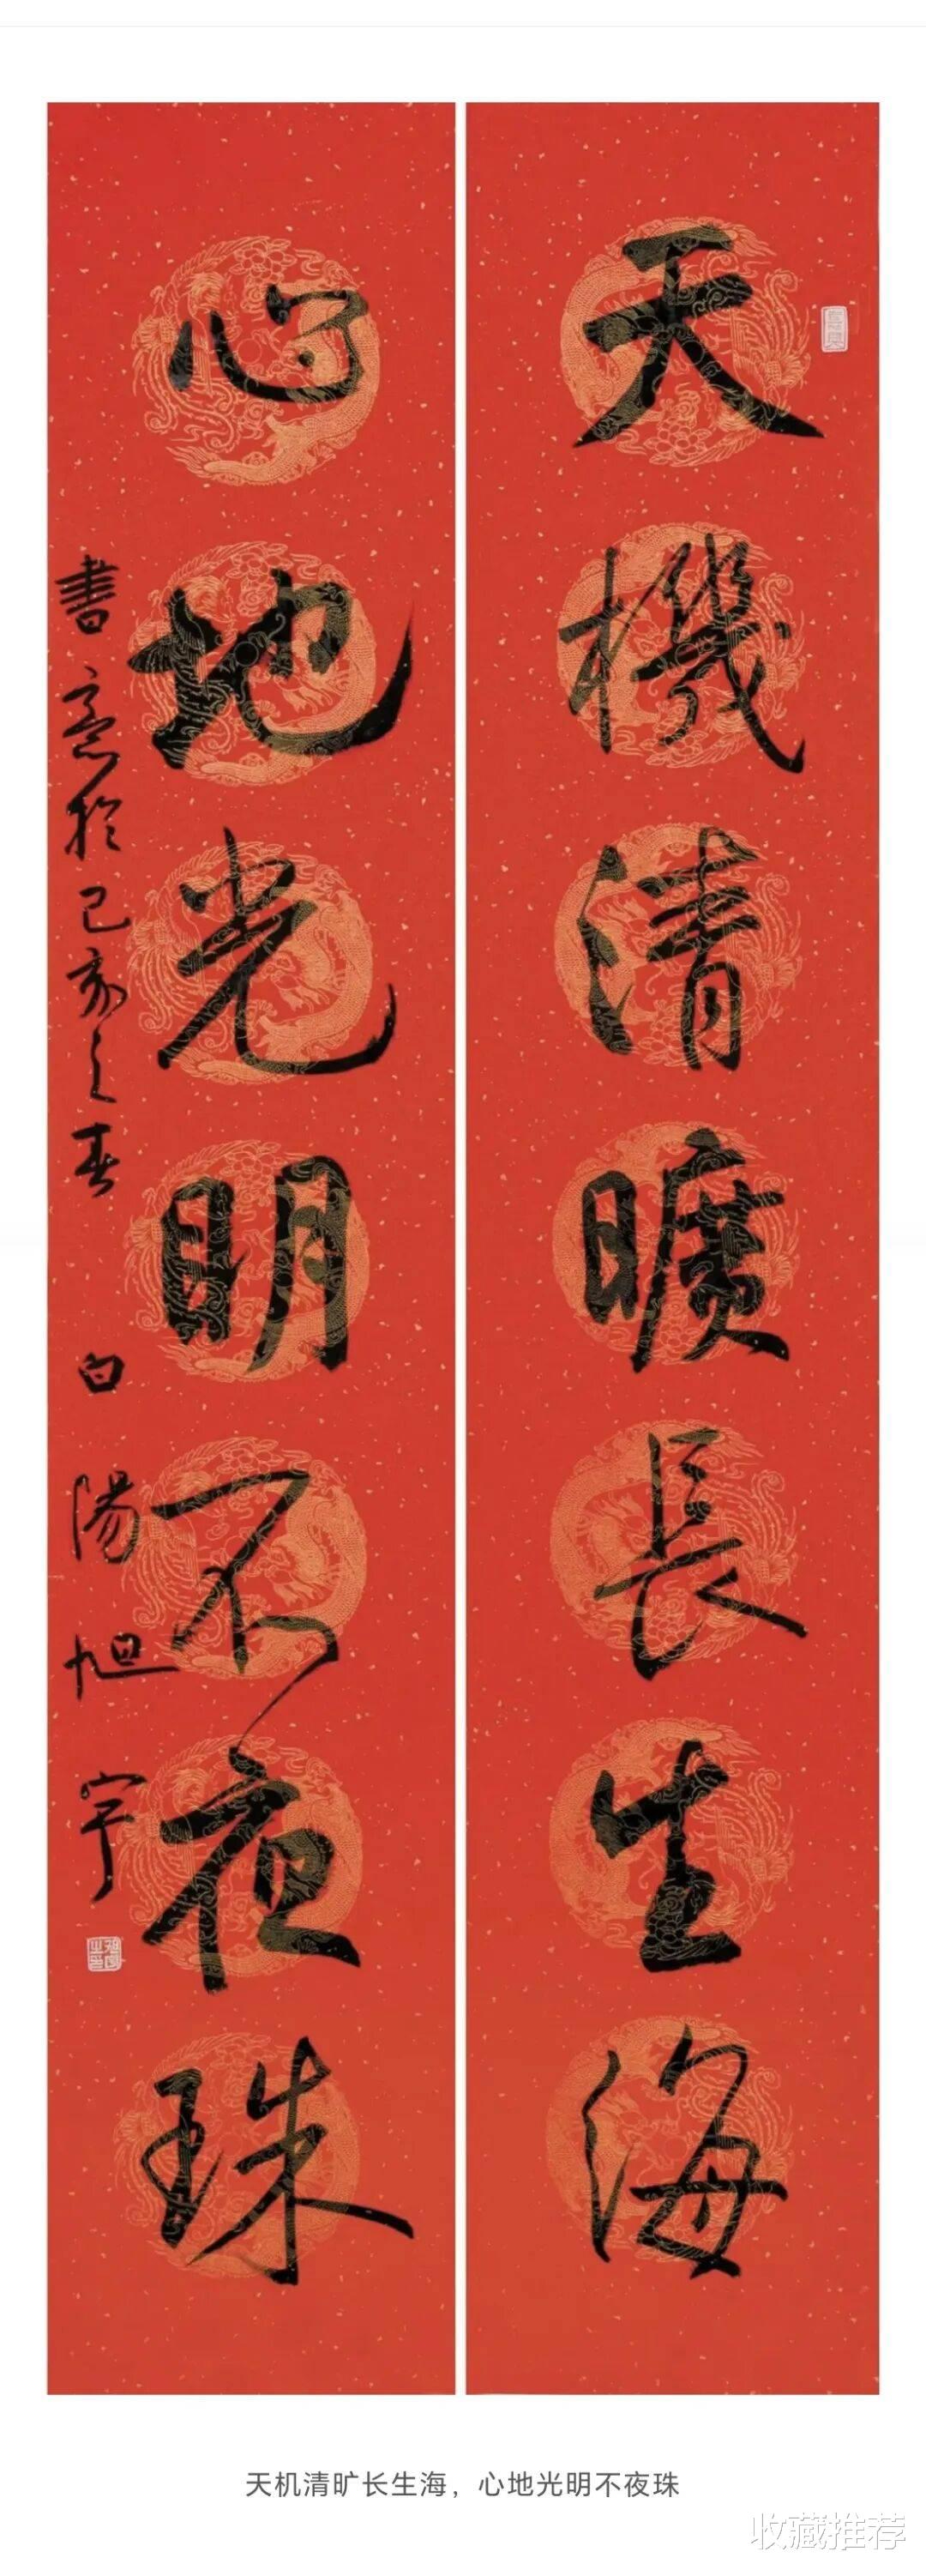 天機清曠長生海
心地光明不夜珠
書意於己亥之春 白湯旭宇
天机清旷长生海，心地光明不夜珠
收藏推荐